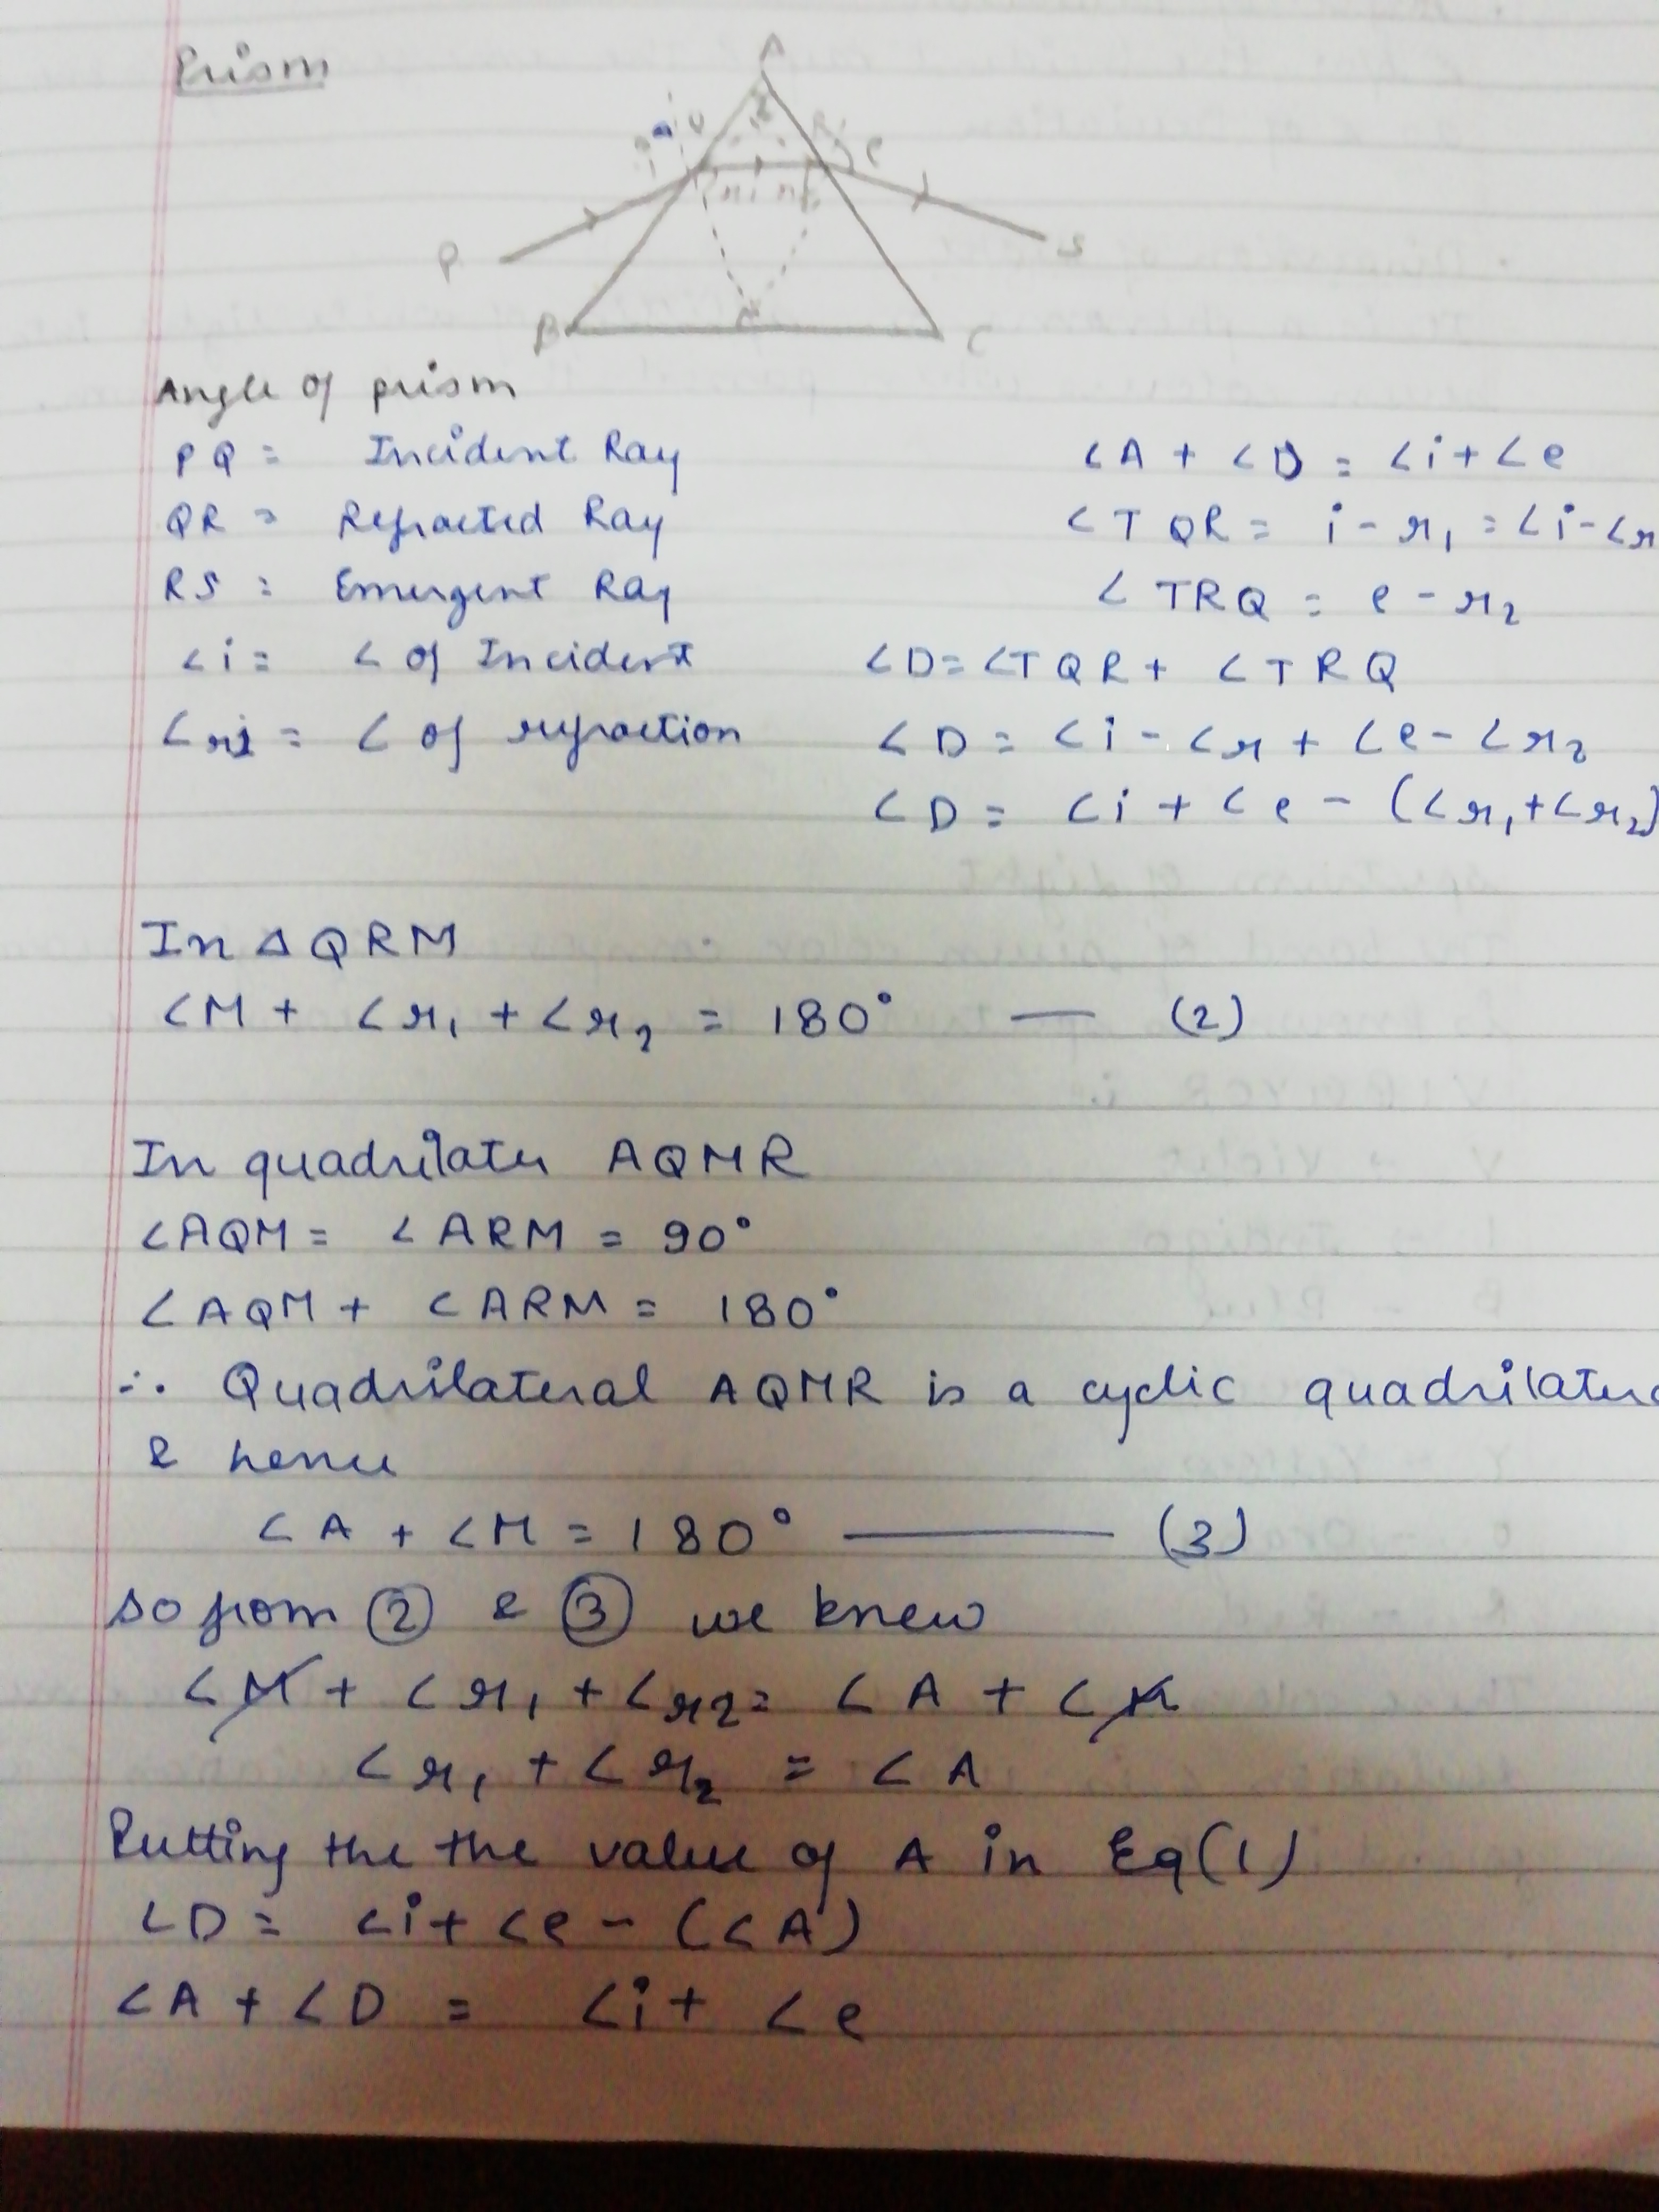 Prism
A
P
S
B
C
e
M
Angle of prism
PQ = Incident Ray
QR = Refracted Ray
RS = Emergent Ray
∠i = ∠ of Incident
∠r1 = ∠ of refraction
∠A + ∠D = ∠i + ∠e
∠TQR = i - r₁ = ∠i - ∠r
∠TRQ = e - r₂
∠D = ∠TQR + ∠TRQ
∠D = ∠i - ∠r + ∠e - ∠r₂
∠D = ∠i + ∠e - (∠r₁ + ∠r₂)
In Δ QRM
∠M + ∠r₁ + ∠r₂ = 180° — (2)
In quadrilater AQMR
∠AQM = ∠ARM = 90°
∠AQM + ∠ARM = 180°
∴ Quadrilateral AQMR is a cyclic quadrilater
& hence
∠A + ∠M = 180° — (3)
so from ② & ③ we knew
∠M + ∠r₁ + ∠r2 = ∠A + ∠M
∠r₁ + ∠r₂ = ∠A
Putting the the value of A in Eq(1)
∠D = ∠i + ∠e - (∠A)
∠A + ∠D = ∠i + ∠e